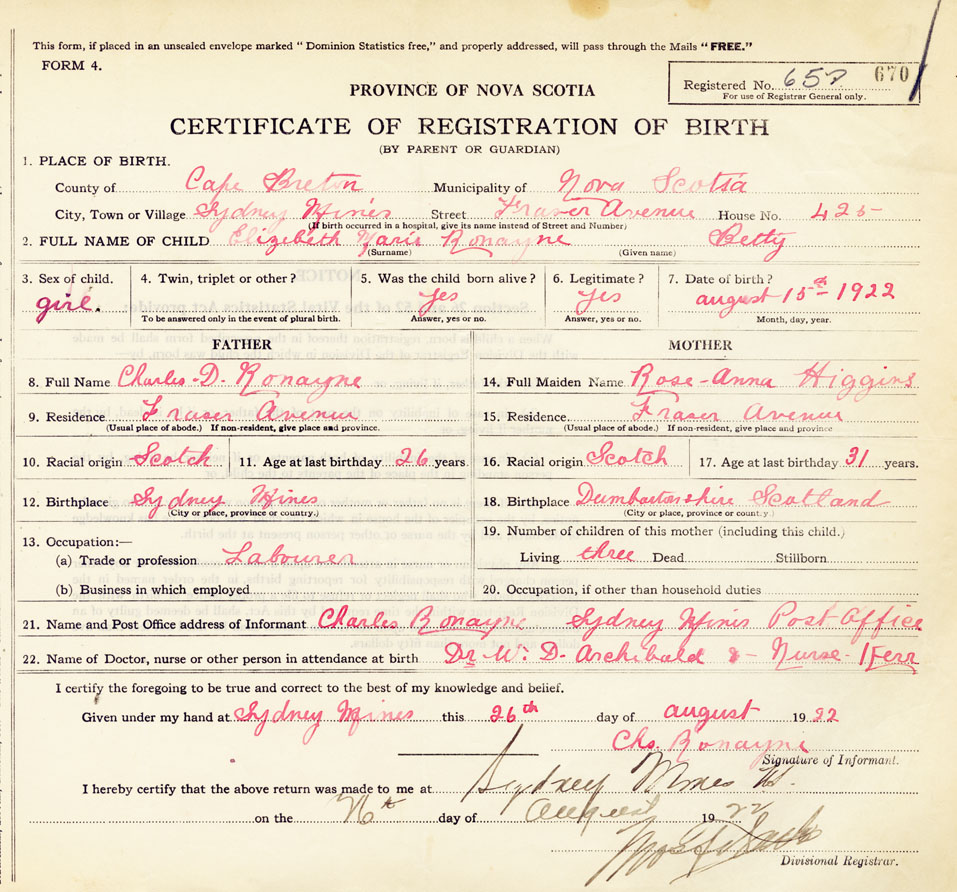 This form, if placed in an unsealed envelope marked "Dominion Statistics free," and properly addressed, will pass through the Mails "FREE."
FORM 4.
Registered No. 657 670
For use of Registrar General only.
PROVINCE OF NOVA SCOTIA
CERTIFICATE OF REGISTRATION OF BIRTH
(BY PARENT OR GUARDIAN)
1. PLACE OF BIRTH.
County of Cape Breton Municipality of Nova Scotia
City, Town or Village Sydney Mines Street Fraser Avenue House No. 425
(If birth occurred in a hospital, give its name instead of Street and Number)
2. FULL NAME OF CHILD Elizebeth Marie Ronayne Betty
(Surname) (Given name)
3. Sex of child. 4. Twin, triplet or other? 5. Was the child born alive? 6. Legitimate? 7. Date of birth?
girl. yes yes august 15th 1922
To be answered only in the event of plural birth. Answer, yes or no. Answer, yes or no. Month, day, year.
FATHER MOTHER
8. Full Name Charles-D-Ronayne 14. Full Maiden Name Rose-Anna Higgins
9. Residence Fraser Avenue 15. Residence Fraser Avenue
(Usual place of abode.) If non-resident, give place and province. (Usual place of abode.) If non-resident, give place and province
10. Racial origin Scotch 11. Age at last birthday 26 years. 16. Racial origin Scotch 17. Age at last birthday 31 years.
12. Birthplace Sydney Mines 18. Birthplace Dumbartonshire Scotland
(City or place, province or country.) (City or place, province or country.)
19. Number of children of this mother (including this child.)
13. Occupation:—
(a) Trade or profession Labourer Living three Dead Stillborn
(b) Business in which employed 20. Occupation, if other than household duties
21. Name and Post Office address of Informant Charles Ronayne Sydney Mines Post Office
22. Name of Doctor, nurse or other person in attendance at birth Dr W. D. Archibald & Nurse Kerr
I certify the foregoing to be true and correct to the best of my knowledge and belief.
Given under my hand at Sydney Mines this 26th day of august 1922
Chs. Ronayne
Signature of Informant.
I hereby certify that the above return was made to me at Sydney Mines
on the 26th day of August 1922
Divisional Registrar.